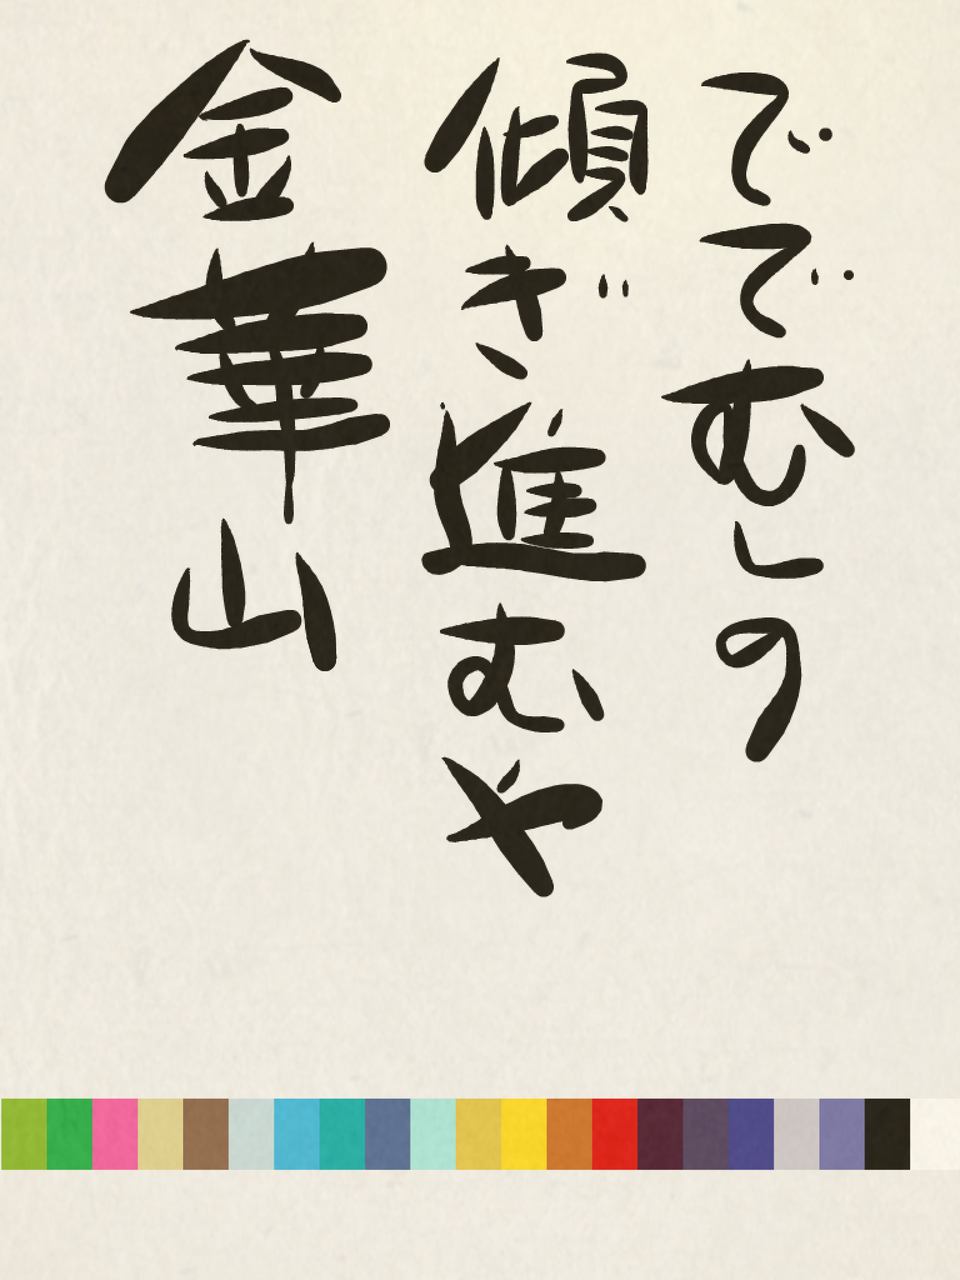 ででむしの
傾ぎ進むや
金華山